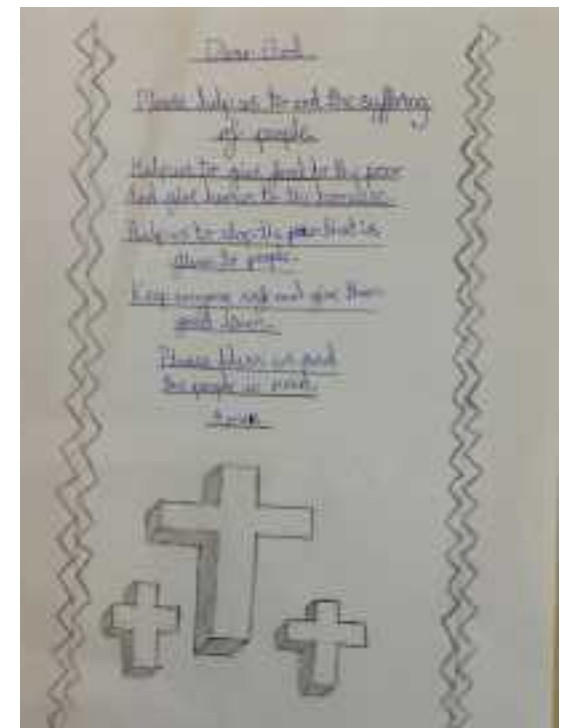 Dear God
Please help us to end the suffering
of people.
Help us to give food to the poor
And give homes to the homeless.
Help us to stop the that is
to people.
Keep everyone safe and give them
good
Please bless us and
the people in need.
Amen